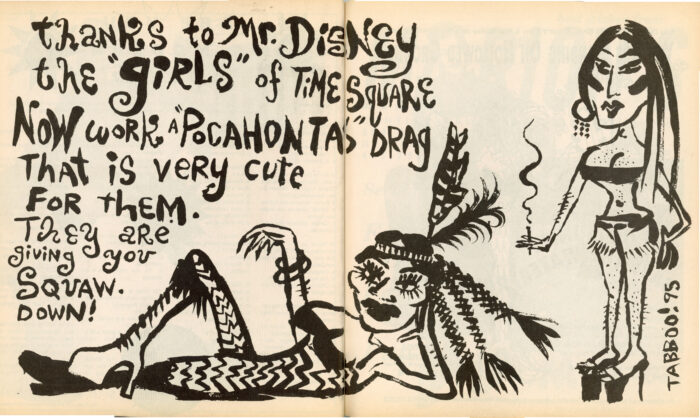 thanks to Mr. DISNEY
the "giRLS" of TiME SQUARE
NOW work A "POCAHONTAS" DRAG
THAT is VERY cute
FOR THEM.
THEY ARE
giving you
SQUAW.
DOWN!
TABBOO! 95